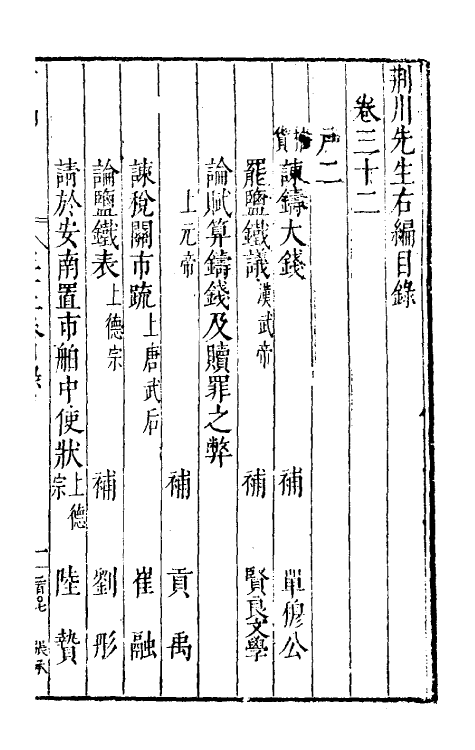 荆川先生右編目錄
卷三十二
戶二
諫鑄大錢 補 單穆公
罷鹽鐵議漢武帝 補 賢良文學
論賦算鑄錢及贖罪之弊
上元帝 補 貢禹
諫稅關市䟽上唐武后 崔融
論鹽鐵表上德宗 補 劉彤
請於安南置市舶中使狀上德宗 陸贄